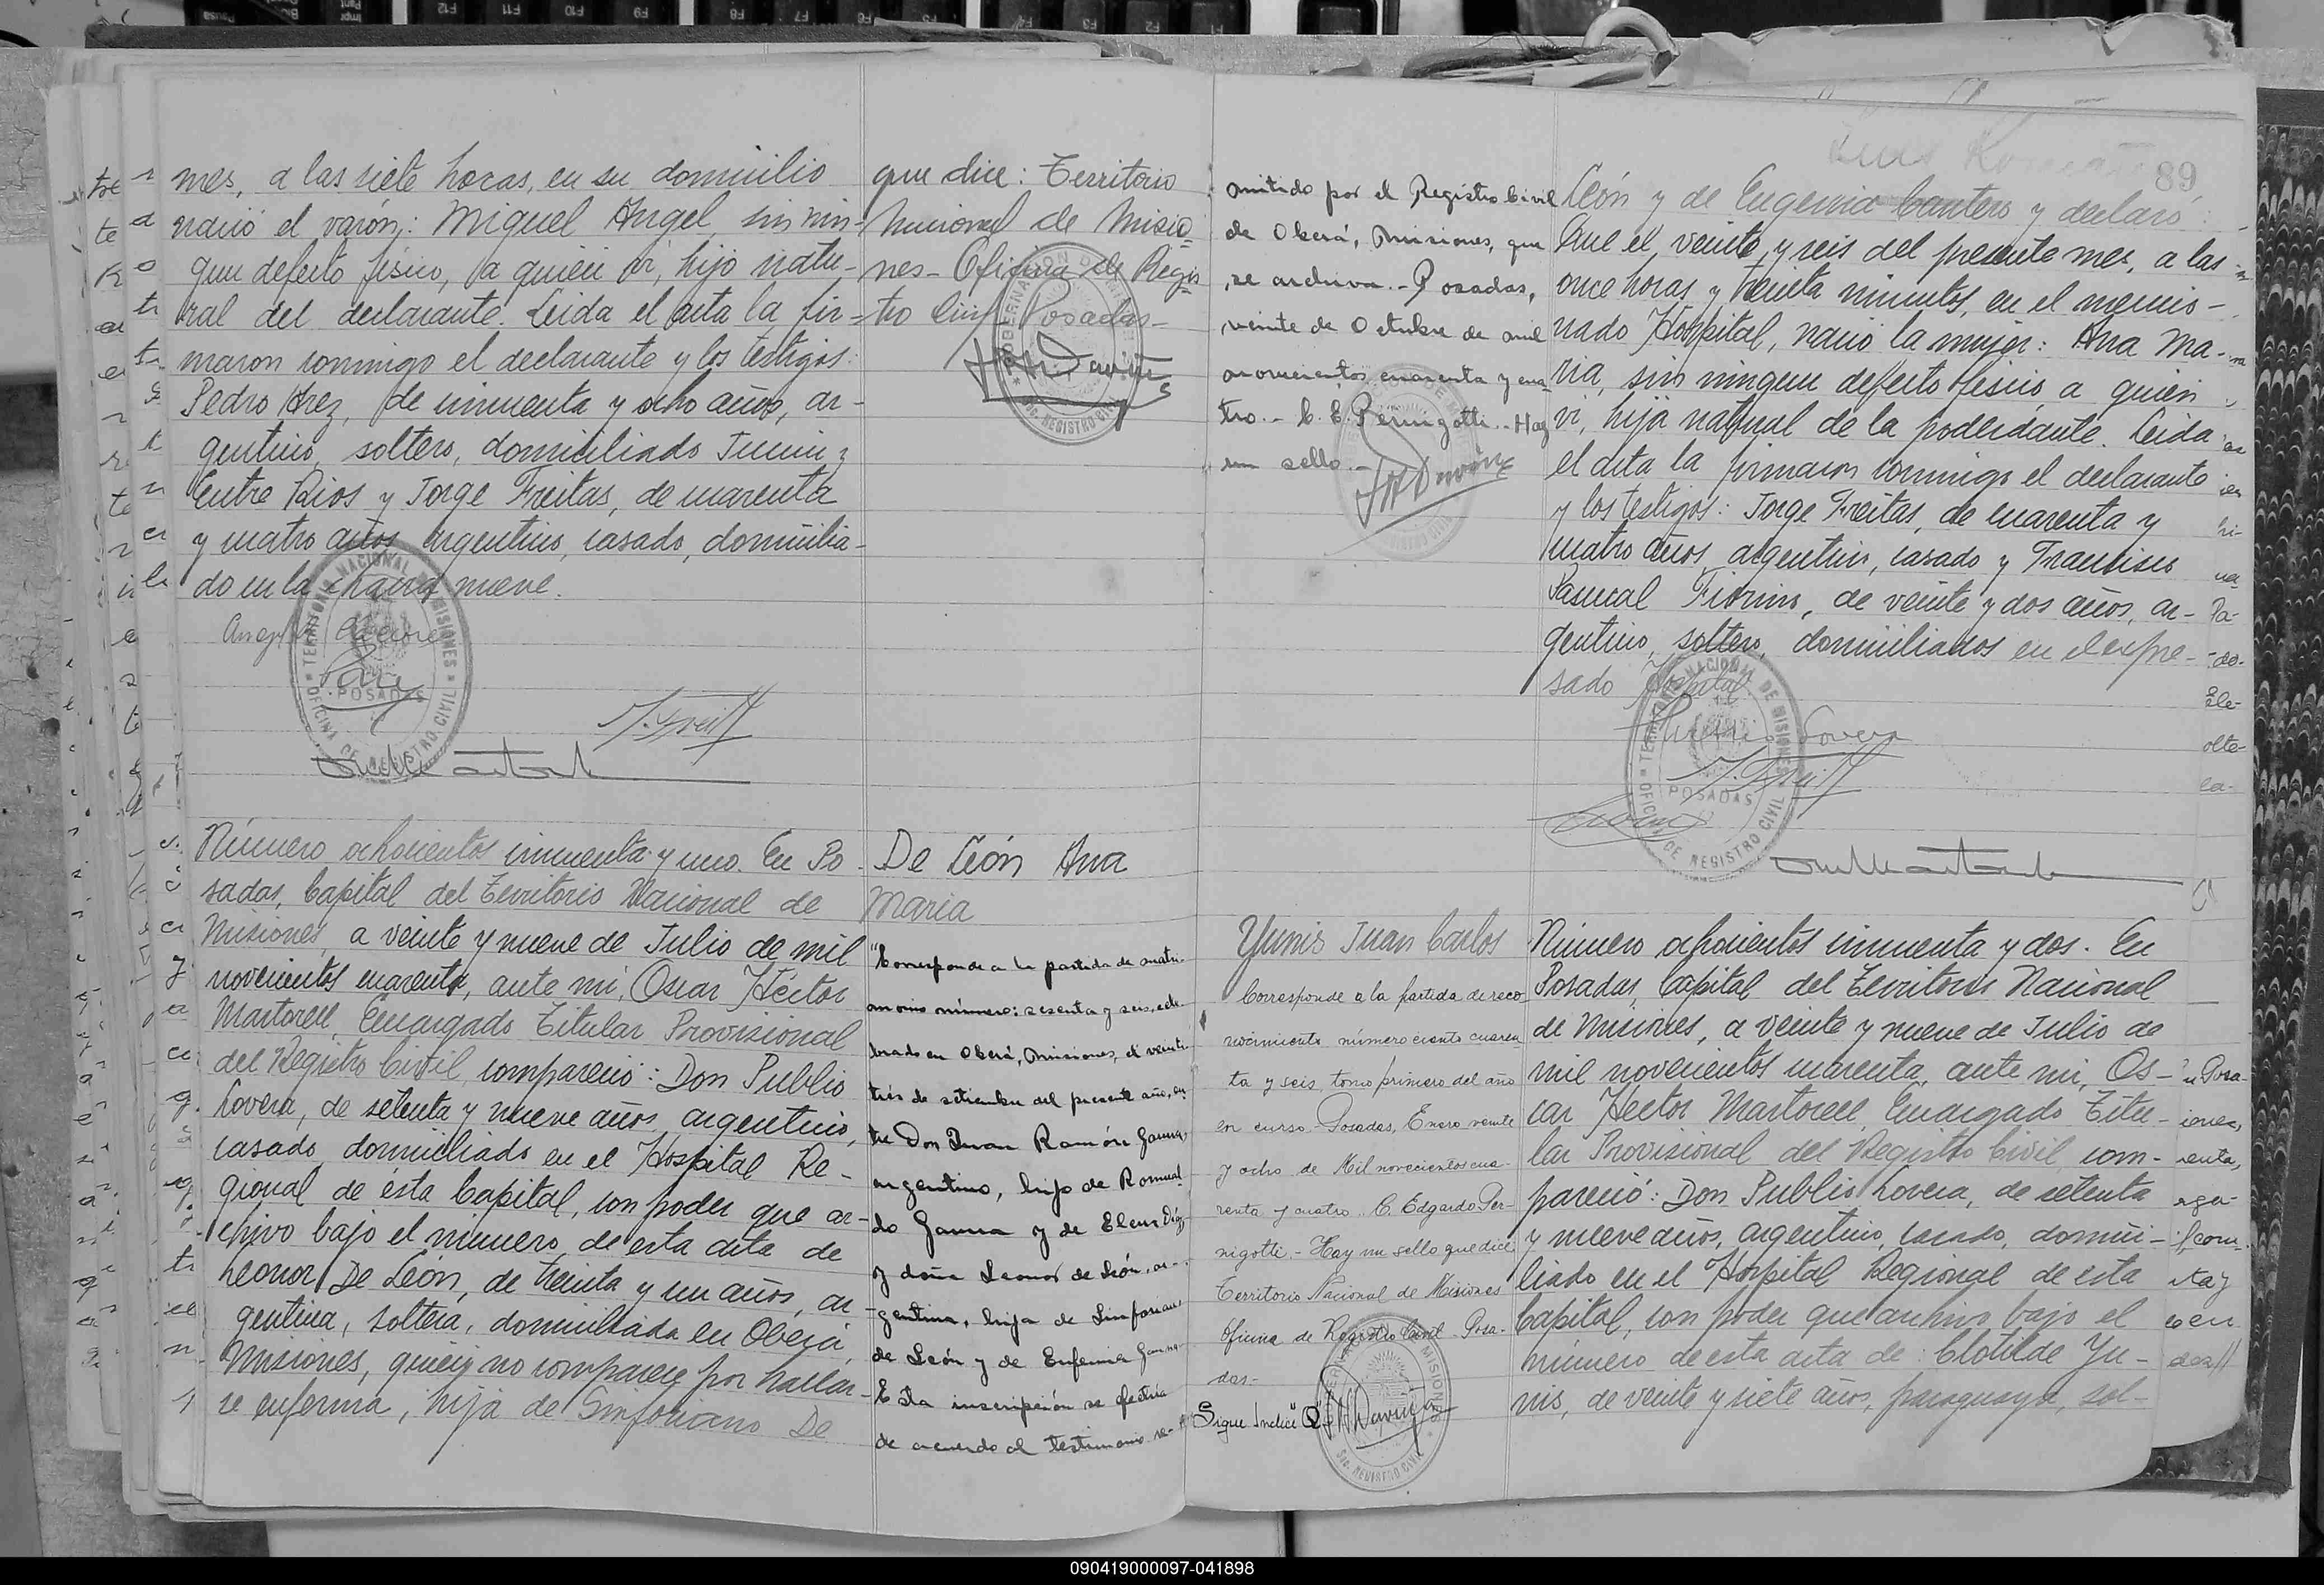 mes, a las siete horas, en su domicilio
nació el varón: Miguel Angel, sin nin-
gun defecto fisico, a quien vi, hijo natu-
ral del declarante. Leida el acta la fir-
maron conmigo el declarante y los testigos:
Pedro Arez, de cincuenta y ocho años, ar-
gentino, soltero, domiciliado Junin y
Entre Rios y Jorge Freitas, de cuarenta
y cuatro años argentino, casado, domicilia-
do en la chacra nueve.
que dice: Territorio
Nacional de Misio-
nes- Oficina de Regis-
tro Civil Posadas-
Número ochocientos cincuenta y uno. En Po-
sadas, Capital del Territorio Nacional de
Misiones, a veinte y nueve de Julio de mil
novecientos cuarenta, ante mi, Oscar Héctor
Martorell, Encargado Titular Provisional
del Registro Civil, compareció: Don Publio
Lovera, de setenta y nueve años, argentino,
casado, domiciliado en el Hospital Re-
gional de ésta Capital, con poder que ar-
chivo bajo el número de esta acta de
Leonor De León, de treinta y un años, ar-
gentina, soltera, domiciliada en Oberá
Misiones, quien no comparece por hallar-
se enferma, hija de Sinforiano De
De León Ana
Maria
"Corresponde a la partida de matri-
monio número: sesenta y seis, cele-
brado en Oberá, Misiones, el veinti-
trés de setiembre del presente año, en-
tre Don Juan Ramón Gauna,
argentino, hijo de Romual-
do Gauna y de Elena Díaz,
y doña Leonor de León, ar-
gentina, hija de Sinforiano
de León y de Eufemia
Esta inscripción se efectúa
de acuerdo al testimonio re-
mitido por el Registro Civil
de Oberá, Misiones, que
se archiva.- Posadas,
veinte de Octubre de mil
novecientos cuarenta y cua-
tro.- C. E. Pernigotti.- Hay
un sello.-
89
León y de Eugenia Cantero y declaró:
Que el veinte y seis del presente mes, a las
once horas y treinta minutos, en el mencio-
nado Hospital, nació la mujer: Ana Ma-
ria, sin ningun defecto fisico a quien
vi, hija natural de la poderdante. Leida
el acta la firmaron conmigo el declarante
y los testigos: Jorge Freitas, de cuarenta y
cuatro años, argentino, casado y Francisco
Pascual Fiorino, de veinte y dos años, ar-
gentino, soltero, domiciliados en el expre-
sado Hospital
Yunis Juan Carlos
Corresponde a la partida de reco-
nocimiento número ciento cuaren-
ta y seis, tomo primero del año
en curso. Posadas, Enero veinte
y ocho de Mil novecientos cua-
renta y cuatro. C. Edgardo Per-
nigotti.- Hay un sello que dice:
Territorio Nacional de Misiones
Oficina de Registro Civil - Posa-
das.-
Sigue Indice
Número ochocientos cincuenta y dos. En
Posadas, Capital del Territorio Nacional
de Misiones, a veinte y nueve de Julio de
mil novecientos cuarenta, ante mi, Os-
car Hector Martorell, Encargado Titu-
lar Provisional del Registro Civil com-
pareció: Don Publio Lovera, de setenta
y nueve años, argentino, casado, domici-
liado en el Hospital Regional de esta
Capital, con poder que archivo bajo el
número de esta acta de: Clotilde Yu-
nis, de veinte y siete años, paraguaya, sol-
TERRITORIO NACIONAL DE MISIONES
POSADAS
OFICINA DE REGISTRO CIVIL
090419000097-041898